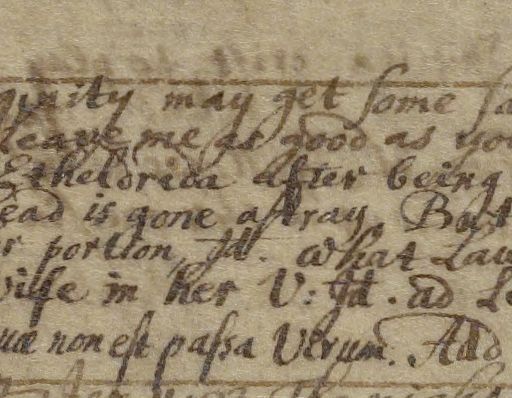 ginity may get some sa
leave me as good as you
Etheldrida after being
ead is gone astray But
r portion, Id. what Law
wife in her V: Id. ad L
uæ non est passa Virum. Add